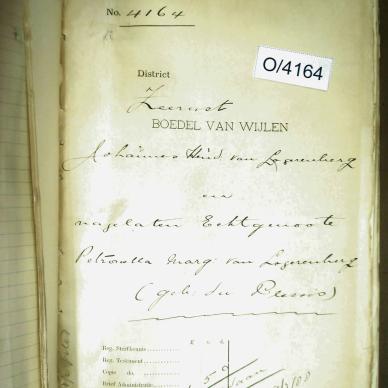 No. 4164
O/4164
District
Zeerust
BOEDEL VAN WIJLEN
Johannes Hend. van Logerenberg
en
nagelaten Echtgenoote
Petronella Marg. van Logerenberg
(geb. du Plessis)
Reg. Sterfkennis
Reg. Testament
Copie do.
Brief Administratie